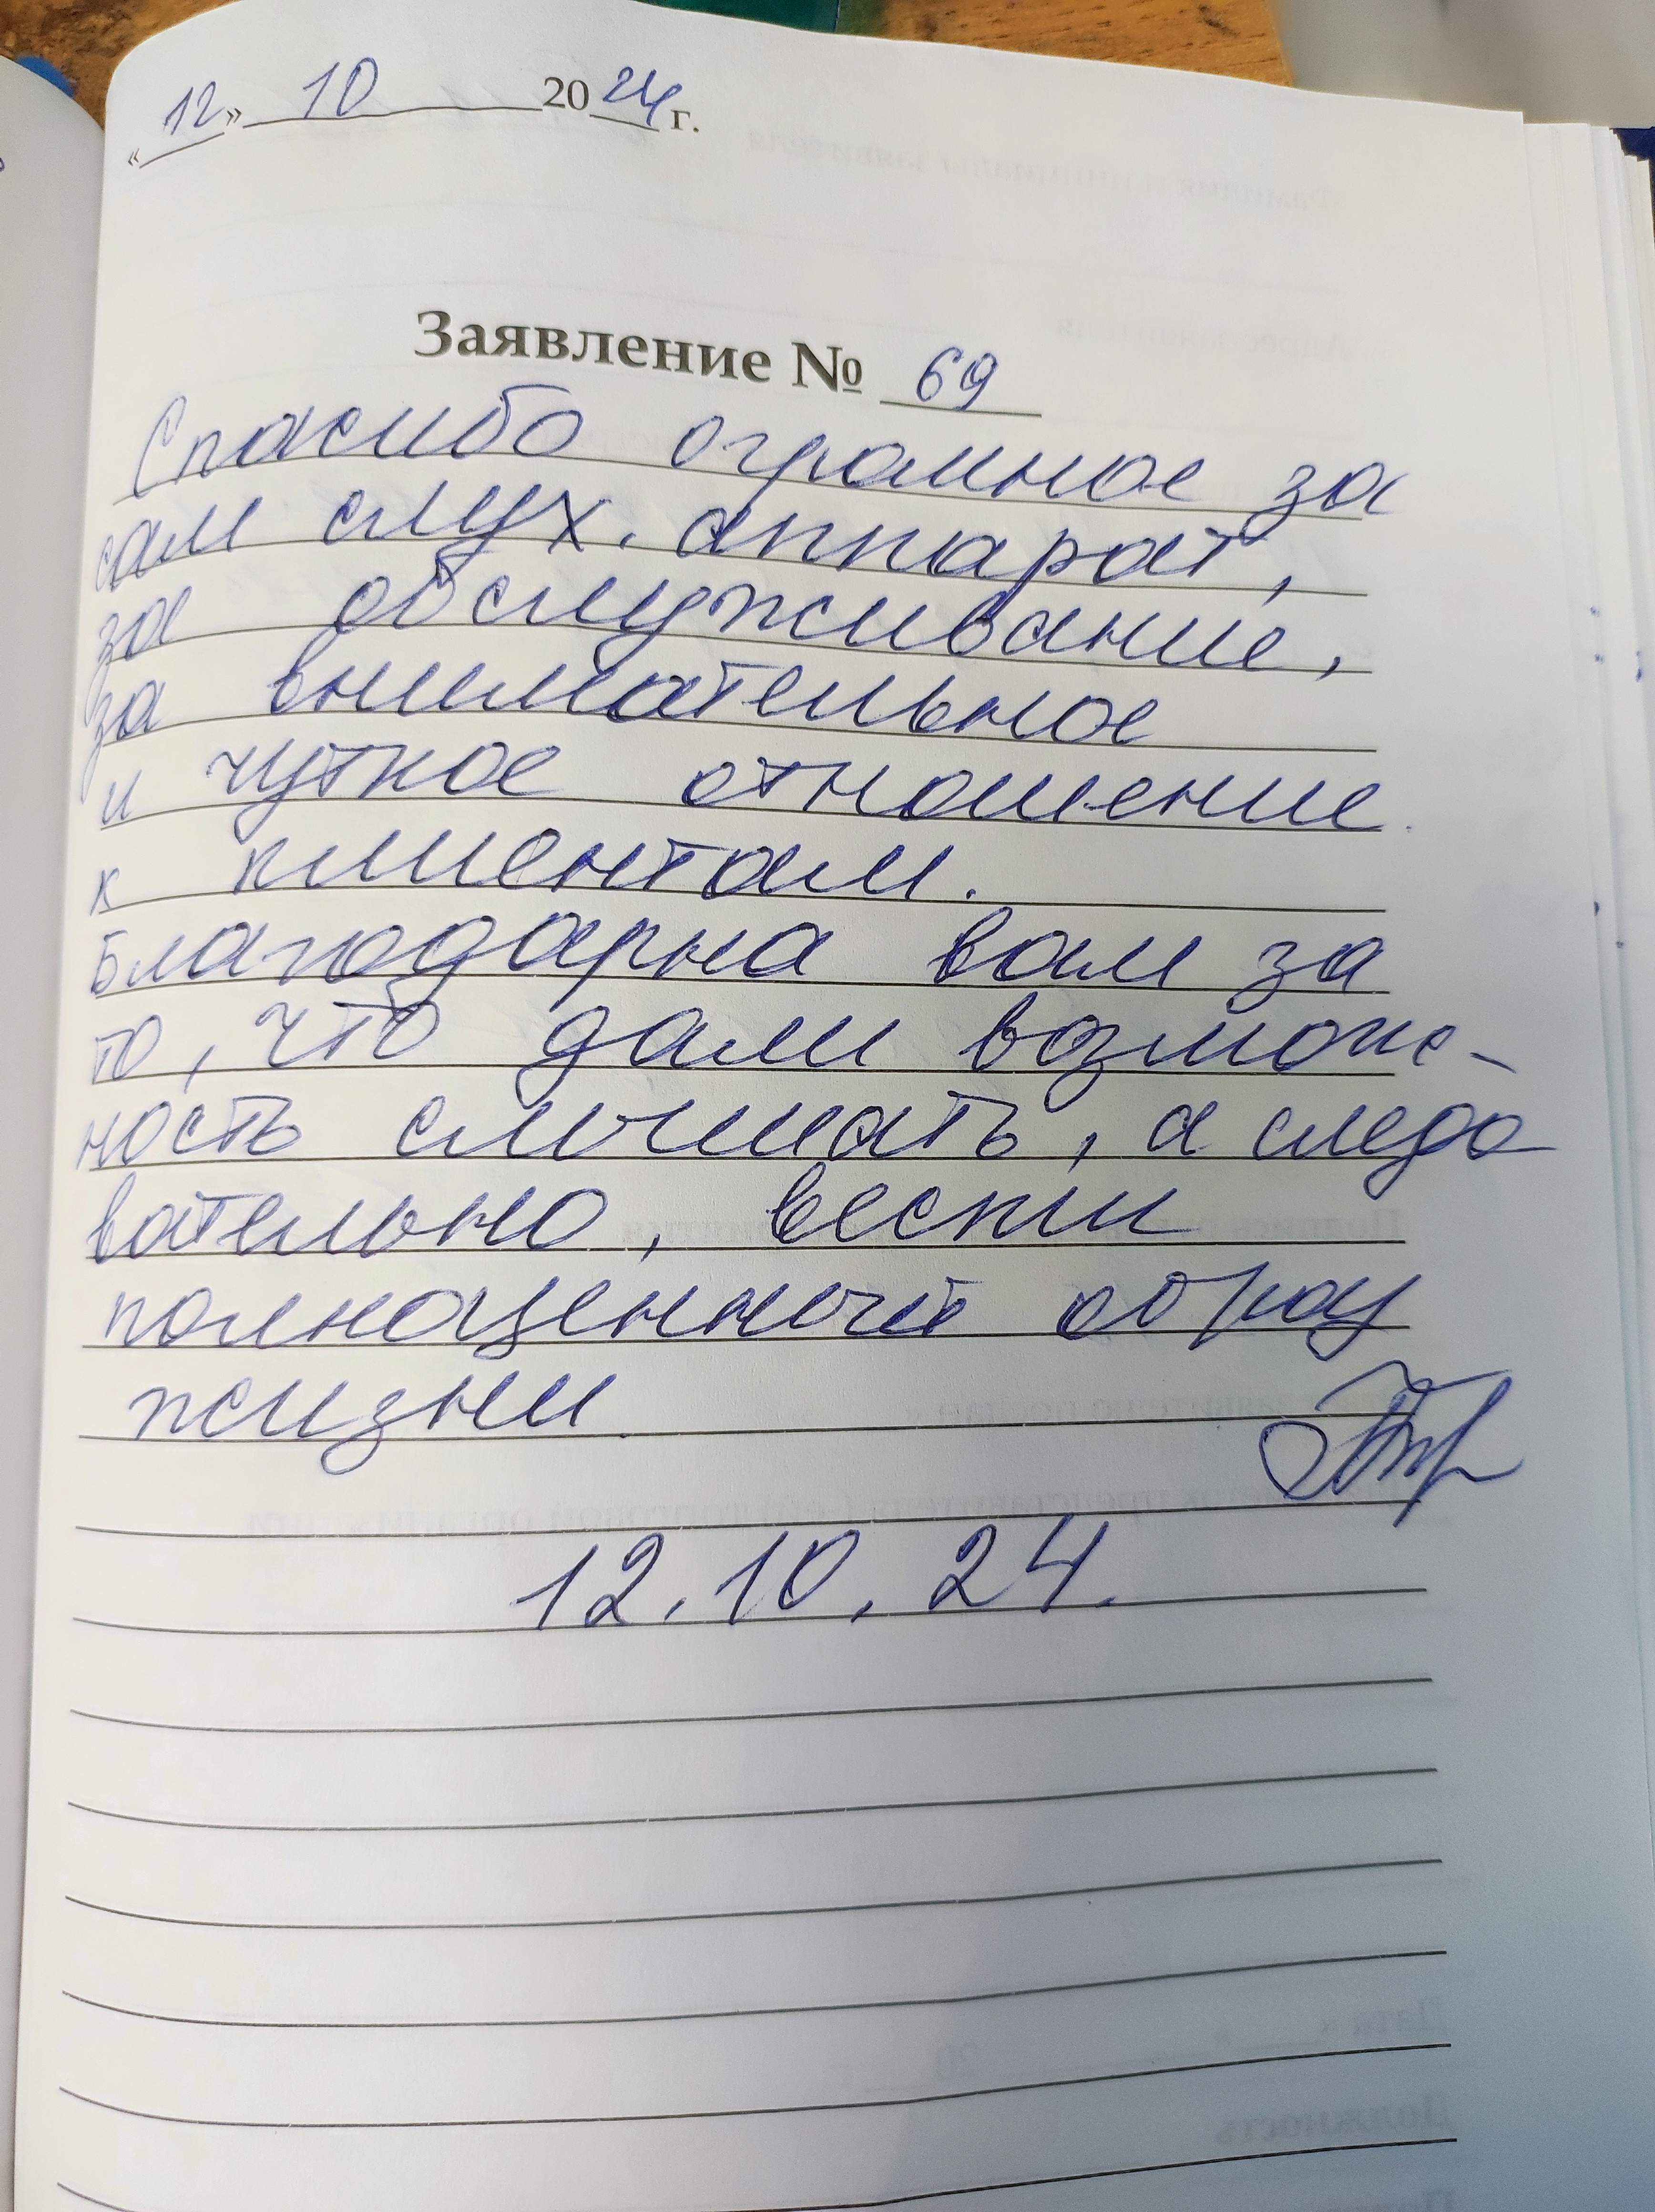 «12» 10 2024 г.
Заявление № 69
Спасибо огромное за
сам слух. аппарат,
за обслуживание,
за внимательное
и чуткое отношение
к клиентам.
Благодарна вам за
то, что дали возмож-
ность слышать, а следо
вательно, вести
полноценный образ
жизни.
12.10.24.